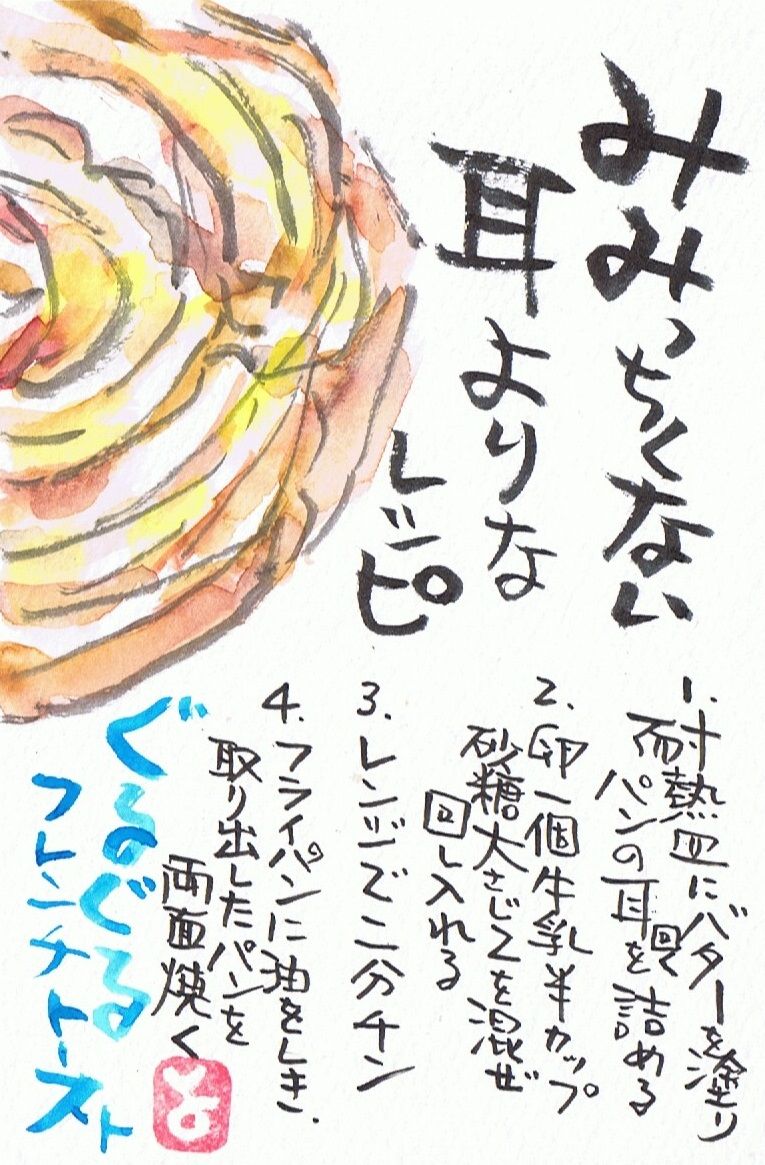 みみっちくない
耳よりな
レシピ
1. 耐熱皿にバターを塗り
パンの耳を回く詰める
2. 卵一個牛乳半カップ
砂糖大さじ2を混ぜ
回し入れる
3. レンジで二分チン
4. フライパンに油をしき、
取り出したパンを
両面焼く
ぐるぐる
フレンチトースト